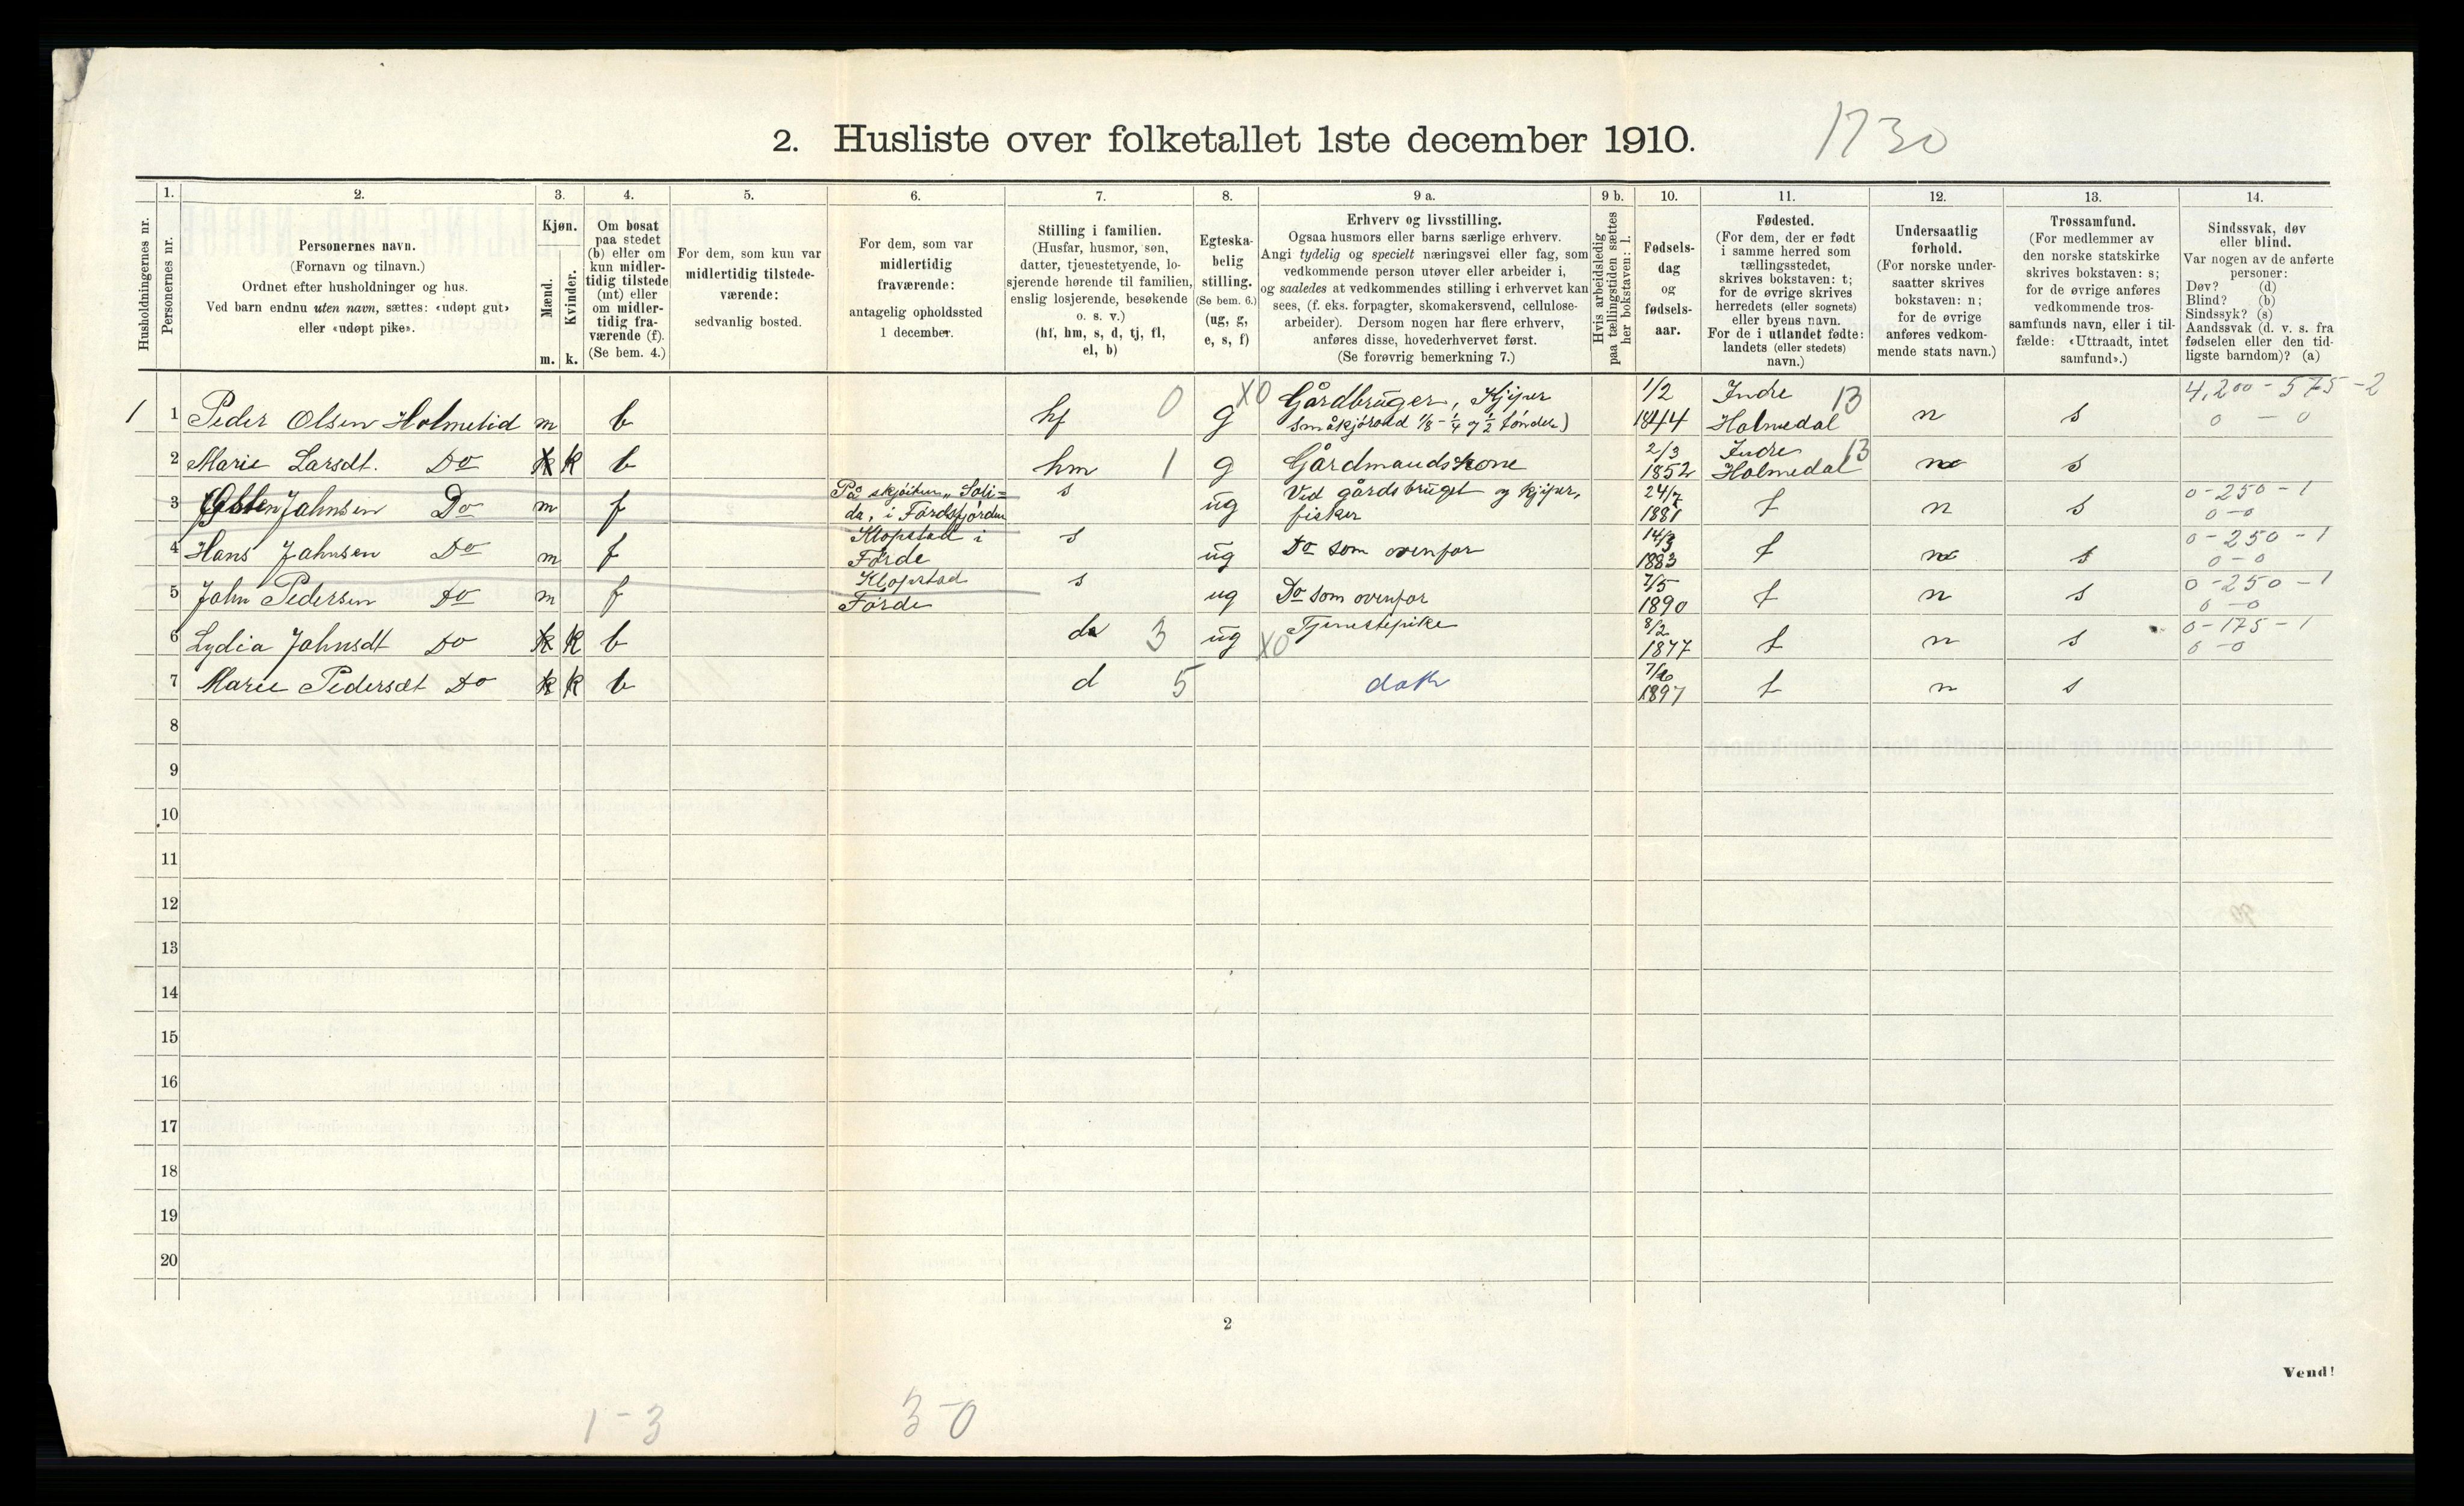 2. Husliste over folketallet 1ste december 1910.
1730
Husholdningernes nr.
1.
Personernes nr.
2.
Personernes navn.
(Fornavn og tilnavn.)
Ordnet efter husholdninger og hus.
Ved barn endnu uten navn, sættes: «udøpt gut»
eller «udøpt pike».
3.
Kjøn.
Mænd.
Kvinder.
m. k.
4.
Om bosat
paa stedet
(b) eller om
kun midler-
tidig tilstede
(mt) eller
om midler-
tidig fra-
værende (f).
(Se bem. 4.)
5.
For dem, som kun var
midlertidig tilstede-
værende:
sedvanlig bosted.
6.
For dem, som var
midlertidig
fraværende:
antagelig opholdssted
1 december.
7.
Stilling i familien.
(Husfar, husmor, søn,
datter, tjenestetyende, lo-
sjerende hørende til familien,
enslig losjerende, besøkende
o. s. v.)
(hf, hm, s, d, tj, fl,
el, b)
8.
Egteska-
belig
stilling.
(Se bem. 6.)
(ug, g,
e, s, f)
9 a.
Erhverv og livsstilling.
Ogsaa husmors eller barns særlige erhverv.
Angi tydelig og specielt næringsvei eller fag, som
vedkommende person utøver eller arbeider i,
og saaledes at vedkommendes stilling i erhvervet kan
sees, (f. eks. forpagter, skomakersvend, cellulose-
arbeider). Dersom nogen har flere erhverv,
anføres disse, hovederhvervet først.
(Se forøvrig bemerkning 7.)
9 b.
Hvis arbeidsledig
paa tællingstiden sættes
her bokstaven: l.
10.
Fødsels-
dag
og
fødsels-
aar.
11.
Fødested.
(For dem, der er født
i samme herred som
tællingsstedet,
skrives bokstaven: t;
for de øvrige skrives
herredets (eller sognets)
eller byens navn.
For de i utlandet fødte:
landets (eller stedets)
navn.)
12.
Undersaatlig
forhold.
(For norske under-
saatter skrives
bokstaven: n;
for de øvrige
anføres vedkom-
mende stats navn.)
13.
Trossamfund.
(For medlemmer av
den norske statskirke
skrives bokstaven: s;
for de øvrige anføres
vedkommende tros-
samfunds navn, eller i til-
fælde: «Uttraadt, intet
samfund».)
14.
Sindssvak, døv
eller blind.
Var nogen av de anførte
personer:
Døv? (d)
Blind? (b)
Sindssyk? (s)
Aandssvak (d. v. s. fra
fødselen eller den tid-
ligste barndom)? (a)
1 1 Peder Olsen Holmelid m b hf 0 g X0 Gårdbruger, Kjiper 1/2 1844 Indre Holmedal 13 n s 4,200-575-2
Småkjørald 1/8 - 1/4 og 1/2 tønder) 0 - 0
2 Marie Larsdt. Do k b hm 1 g Gårdmandskone 2/3 1852 Indre Holmedal 13 n s
3 Jahnsen Do m f På skjøiten "Soli=
da, i Fördefjorden s ug Ved gårdsbruget og kjiper,
fisker 24/7 1881 t n s 0-250-1
0-0
4 Hans Jahnsen Do m f Klopstad i
Förde s ug Do som ovenfor 14/3 1883 t n s 0-250-1
0-0
5 John Pedersen Do m f Klopstad
Förde s ug Do som ovenfor 7/5 1890 t n s 0-250-1
0-0
6 Lydia Jahnsdt Do k b d 3 ug X0 Tjenestepike 8/2 1877 t n s 0-175-1
0-0
7 Marie Pedersdt Do k b d 5 datt 1897 t n s
8
9
10
11
12
13
14
15
16
17
18
19
20
2
Vend!
1-3
3-0